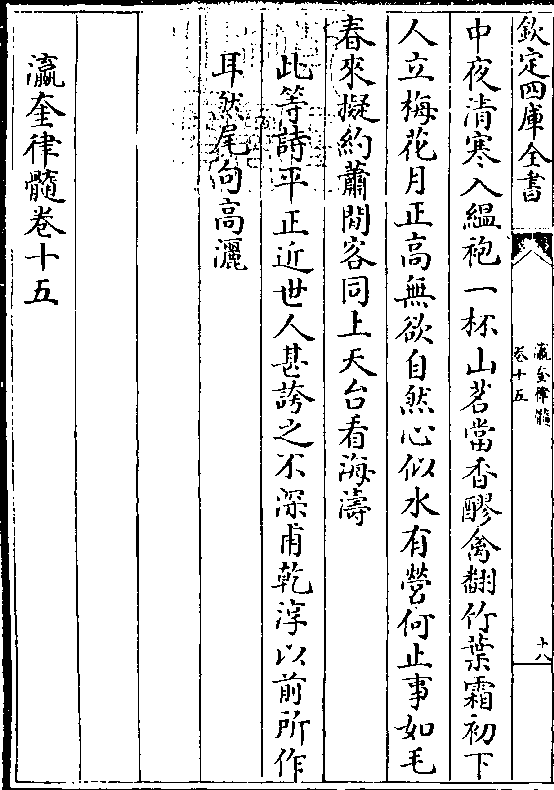 欽定四庫全書
瀛奎律髓
卷十五
十八
中夜清寒入緼袍一杯山茗當香醪禽翻竹葉霜初下
人立梅花月正高無欲自然心似水有營何止事如毛
春來擬約蕭閒客同上天台看海濤
此等詩平正近世人甚誇之不深甫乾淳以前所作
耳然尾句高灑
瀛奎律髓卷十五